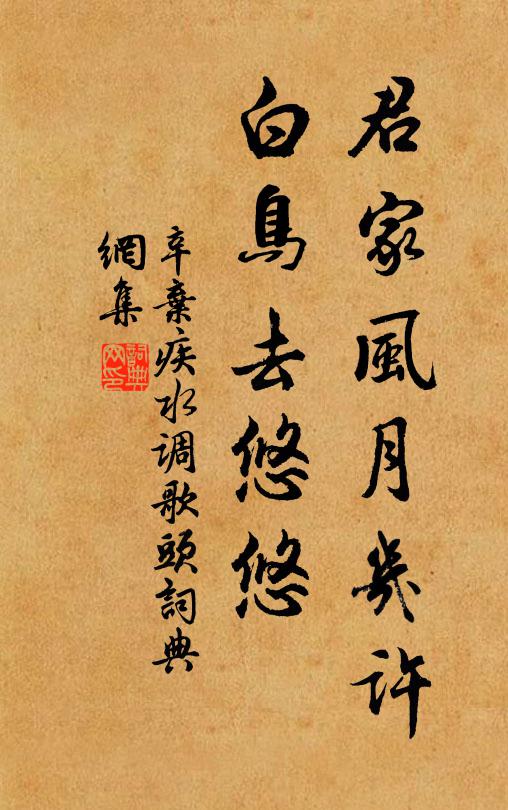 君家風月幾許
白鳥去悠悠
辛棄疾水调歌頭詞典
網集
詞典网印